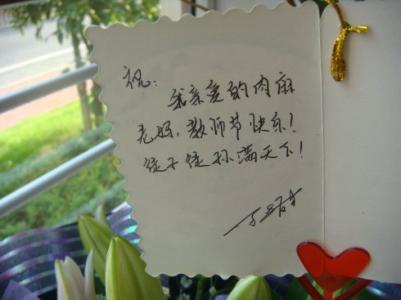 祝：
我亲爱的肉麻
老妈，教师节快乐！
徒子徒孙满天下！